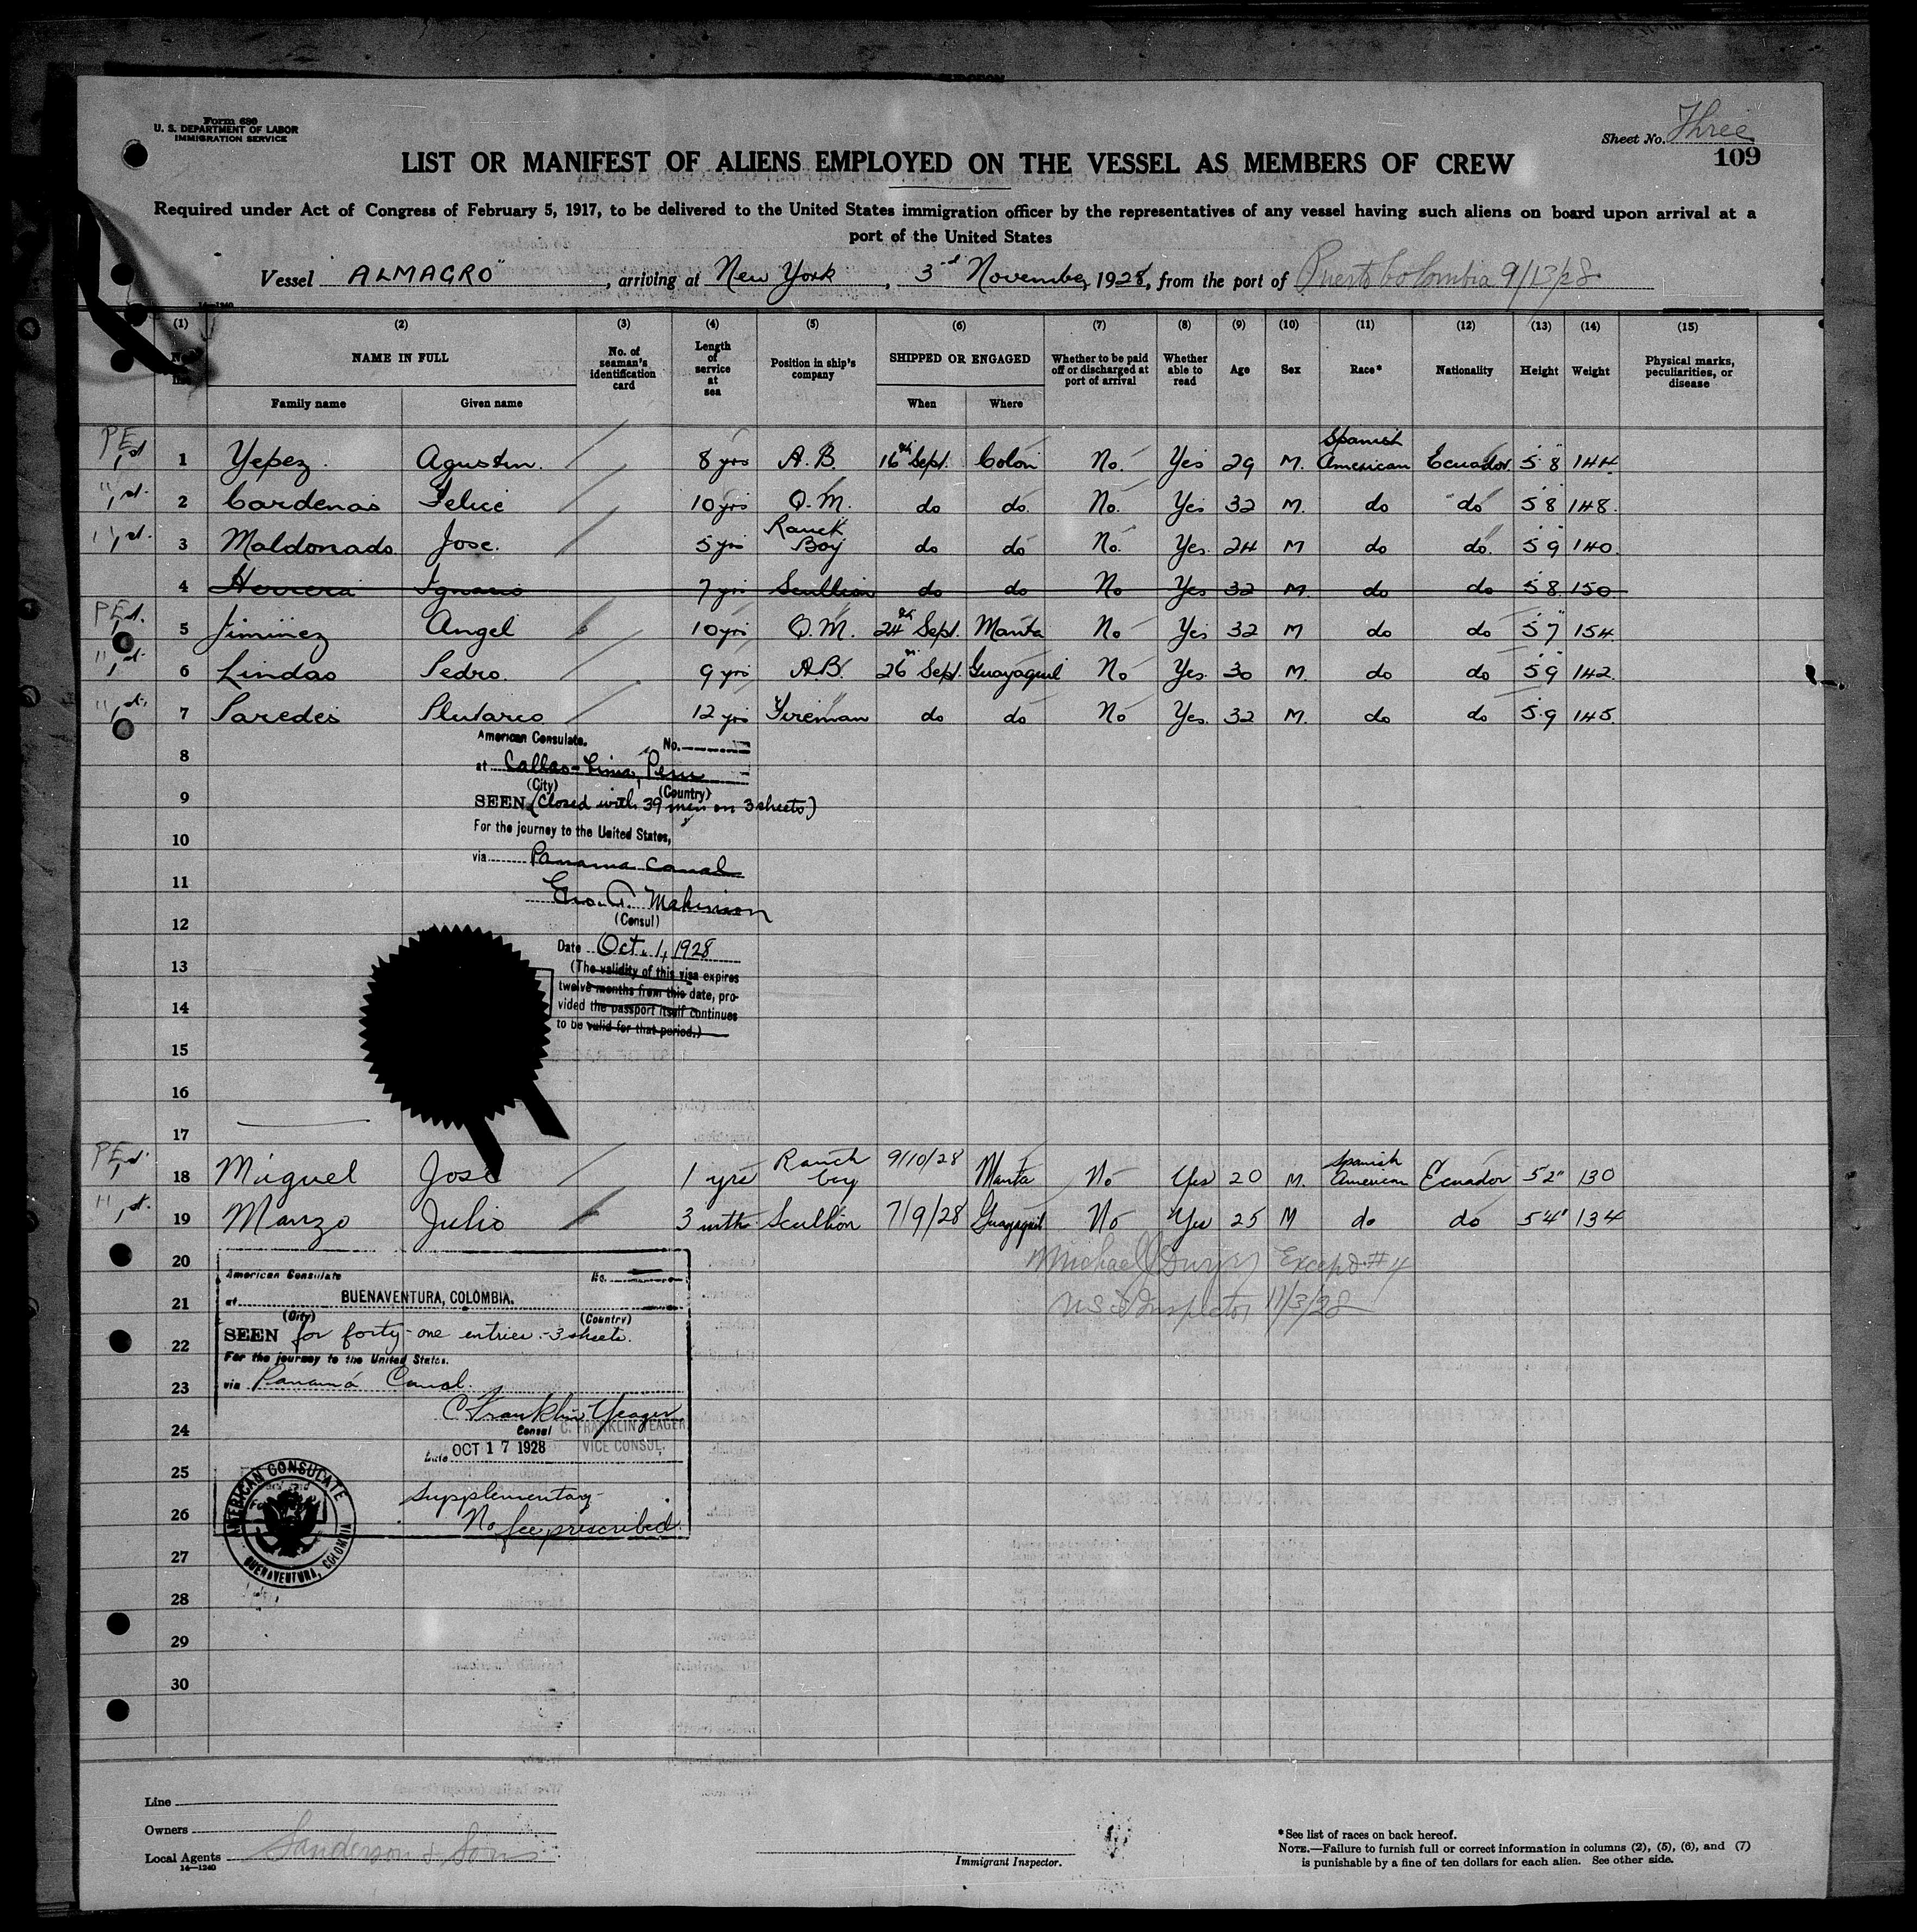 Form 680
U. S. DEPARTMENT OF LABOR
IMMIGRATION SERVICE
Sheet No. Three
109
LIST OR MANIFEST OF ALIENS EMPLOYED ON THE VESSEL AS MEMBERS OF CREW
Required under Act of Congress of February 5, 1917, to be delivered to the United States immigration officer by the representatives of any vessel having such aliens on board upon arrival at a
port of the United States
Vessel "ALMAGRO", arriving at New York, 3rd November, 1928, from the port of Puerto Colombia 9/13/28
14—1240
(1) (2) (3) (4) (5) (6) (7) (8) (9) (10) (11) (12) (13) (14) (15)
NAME IN FULL
Family name
Given name
No. of seaman's identification card
Length of service at sea
Position in ship's company
SHIPPED OR ENGAGED
When
Where
Whether to be paid off or discharged at port of arrival
Whether able to read
Age
Sex
Race*
Nationality
Height
Weight
Physical marks, peculiarities, or disease
PE 1 Yepez Agustin. 8 yrs A.B. 16th Sept. Colon No. Yes 29 M. Spanish American Ecuador. 5 8 144
2 Cardenas Felice 10 yrs Q.M. do do. No. Yes 32 M. do do 5 8 148.
3 Maldonado Jose. 5 yrs Ranch Boy do do No. Yes. 24 M do do. 5 9 140.
4 Herrera Ignacio 7 yrs Scullion do do No Yes 32 M. do do 5 8. 150.
PE 5 Jiminez Angel 10 yrs Q.M. 24th Sept. Manta No Yes 32 M do do 5 7 154.
6 Lindao Pedro. 9 yrs A.B. 26th Sept. Guayaquil No Yes. 30 M. do do 5 9 142.
7 Paredes Plutarco 12 yrs Fireman do do No Yes. 32 M. do do 5.9 145.
8
American Consulate. No.
at Callao-Lima, Peru
(City) (Country)
9
SEEN (Closed with 39 men on 3 sheets)
For the journey to the United States,
10
via Panama Canal
11
Geo. A. Makinson
(Consul)
12
Date Oct. 1, 1928
13
(The validity of this visa expires
twelve months from this date, pro-
14
vided the passport itself continues
to be valid for that period.)
15
16
17
PE 18 Miguel José 1 yrs Ranch boy 9/10/28 Manta No Yes 20 M. Spanish American Ecuador 5 2" 130
19 Manzo Julio 3 mths Scullion 7/9/28 Guayaquil No Yes 25 M do do 5'4" 134
20
Michael J Dwyer Except #4
U S I Inspector 11/3/28
American Consulate No.
21
at BUENAVENTURA, COLOMBIA.
(City) (Country)
22
SEEN for forty-one entries - 3 sheets.
For the journey to the United States.
23
via Panamá Canal.
C. Franklin Yeager
24
Consul C. FRANKLIN YEAGER
VICE CONSUL.
Date OCT 17 1928
25
Supplementary -
26
No fee prescribed.
AMERICAN CONSULATE
BUENAVENTURA, COLOMBIA
27
28
29
30
Line
Owners
Local Agents Sanderson & Son
14—1240
Immigrant Inspector.
*See list of races on back hereof.
NOTE.—Failure to furnish full or correct information in columns (2), (5), (6), and (7)
is punishable by a fine of ten dollars for each alien. See other side.